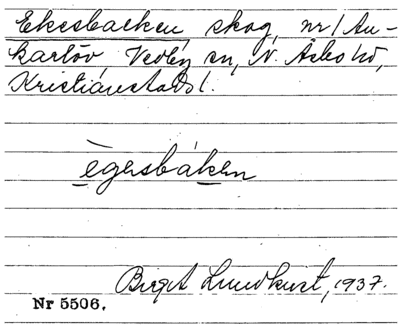 Ekesbacken, skog, nr 1 Au-
karlöv Vedby sn, N. Åsbo hd,
Kristianstads l.
ègesbáken
Birgit Lundkvist, 1937.
Nr 5506.